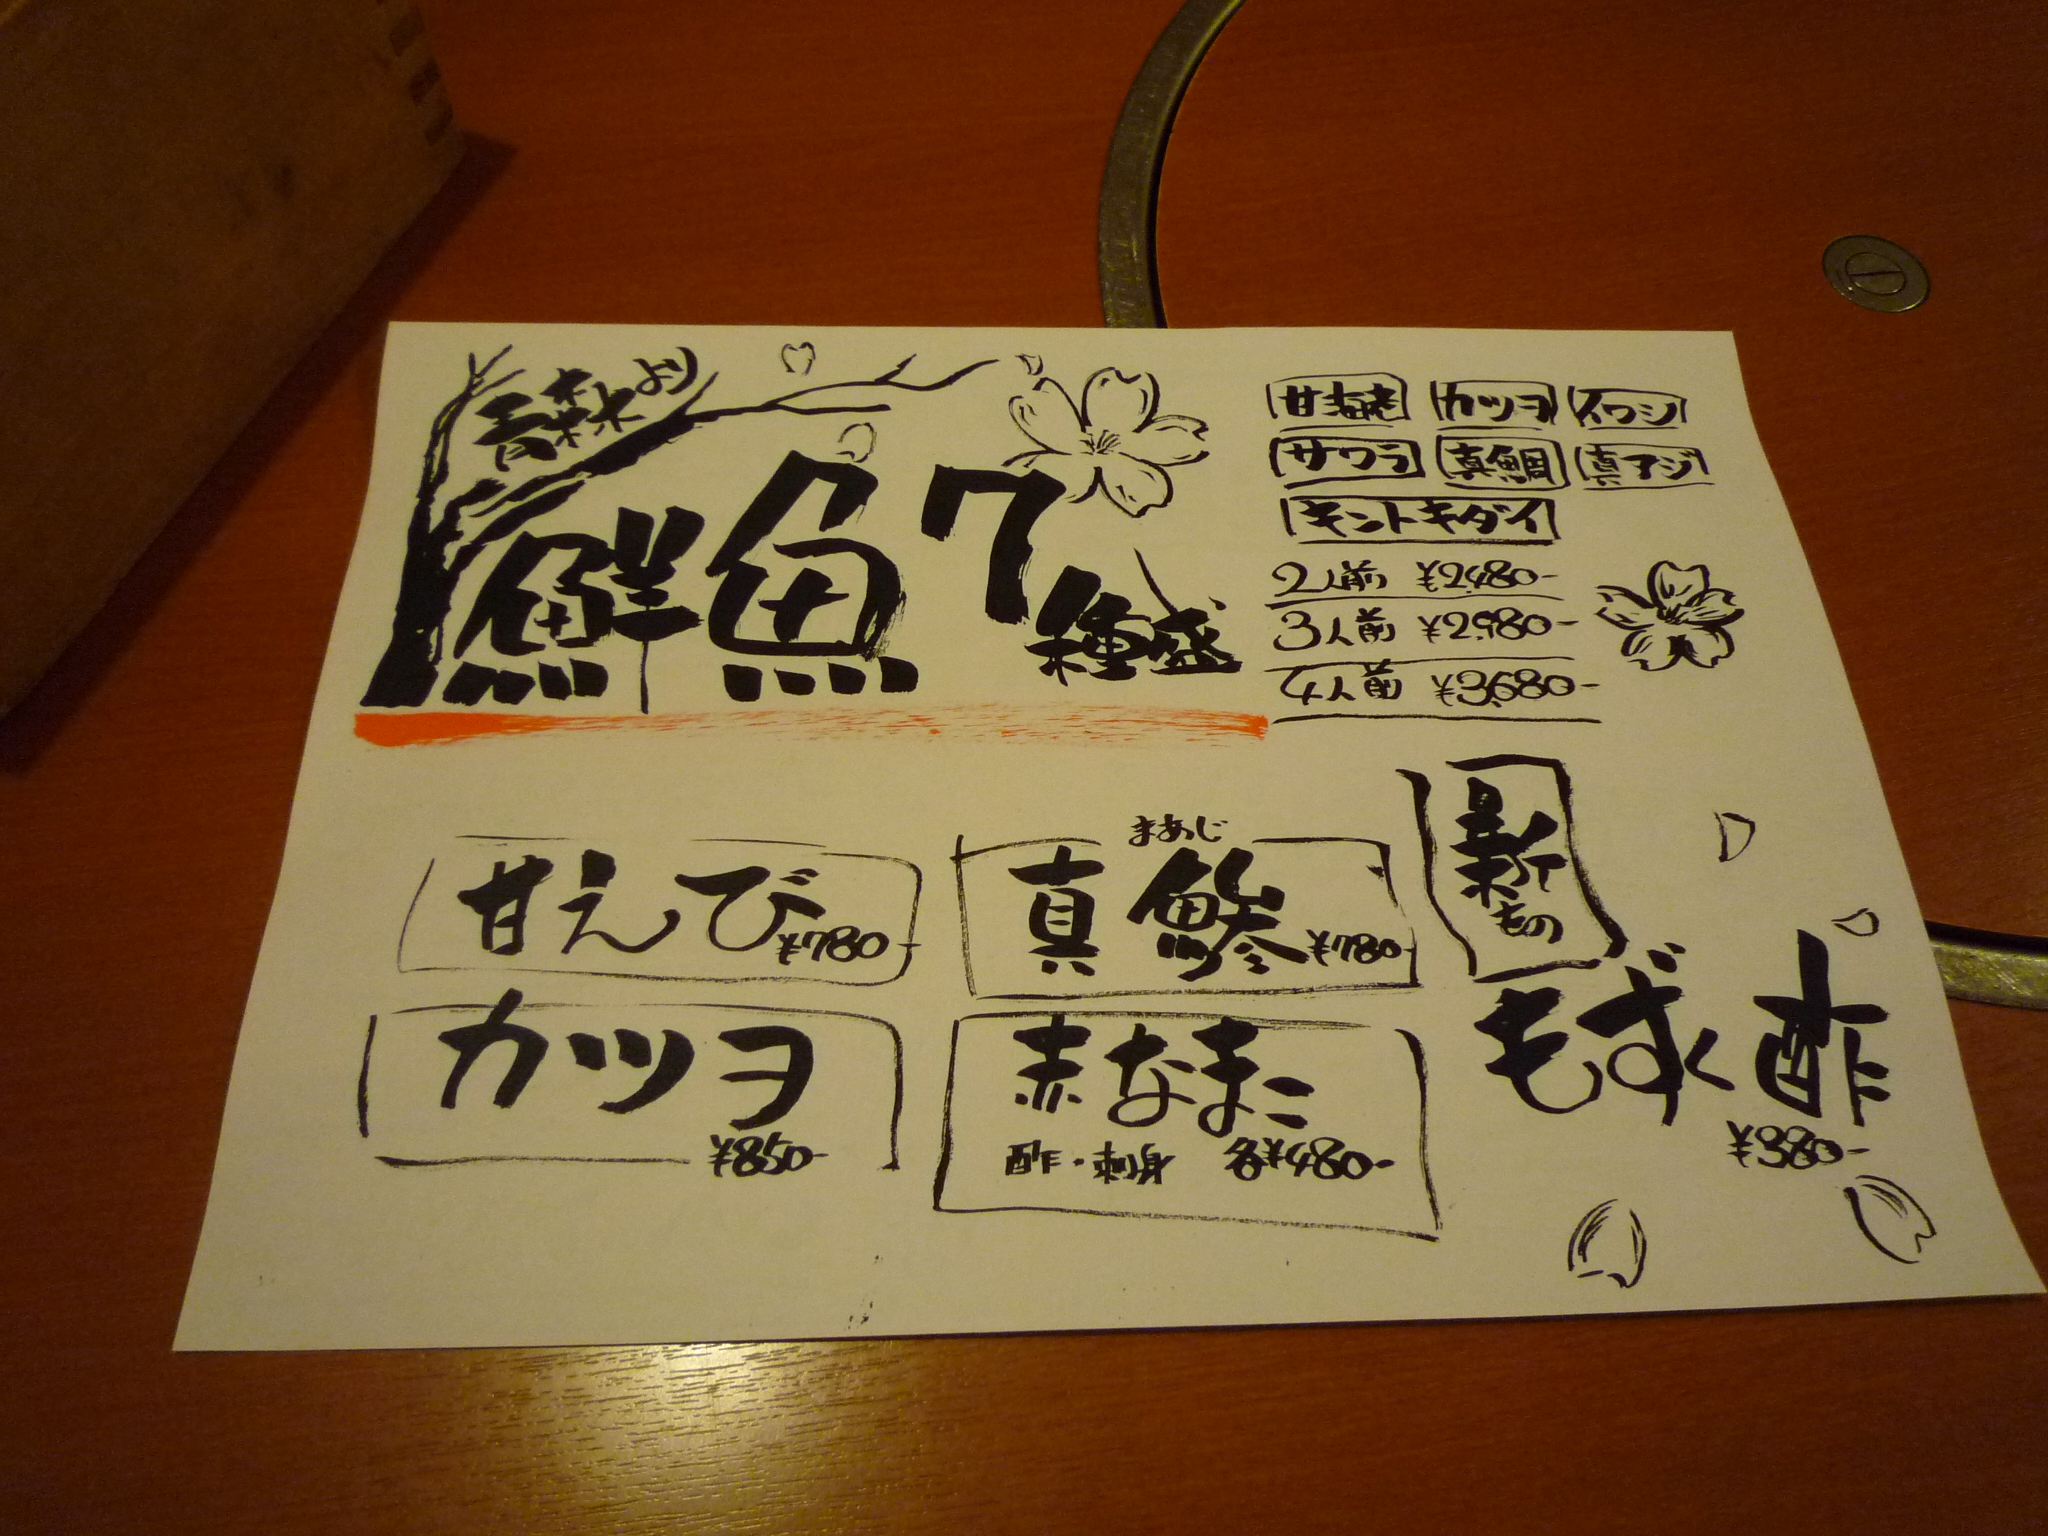 青森より
鮮魚7種盛
甘海老 カツヲ イワシ
サワラ 真鯛 真アジ
キントキダイ
2人前 ¥2,480-
3人前 ¥2,980-
4人前 ¥3,680-
甘えび ¥780-
まあじ
真鯵 ¥780-
カツヲ
¥850-
赤なまこ
酢・刺身 各¥480-
新もの
もずく酢
¥380-